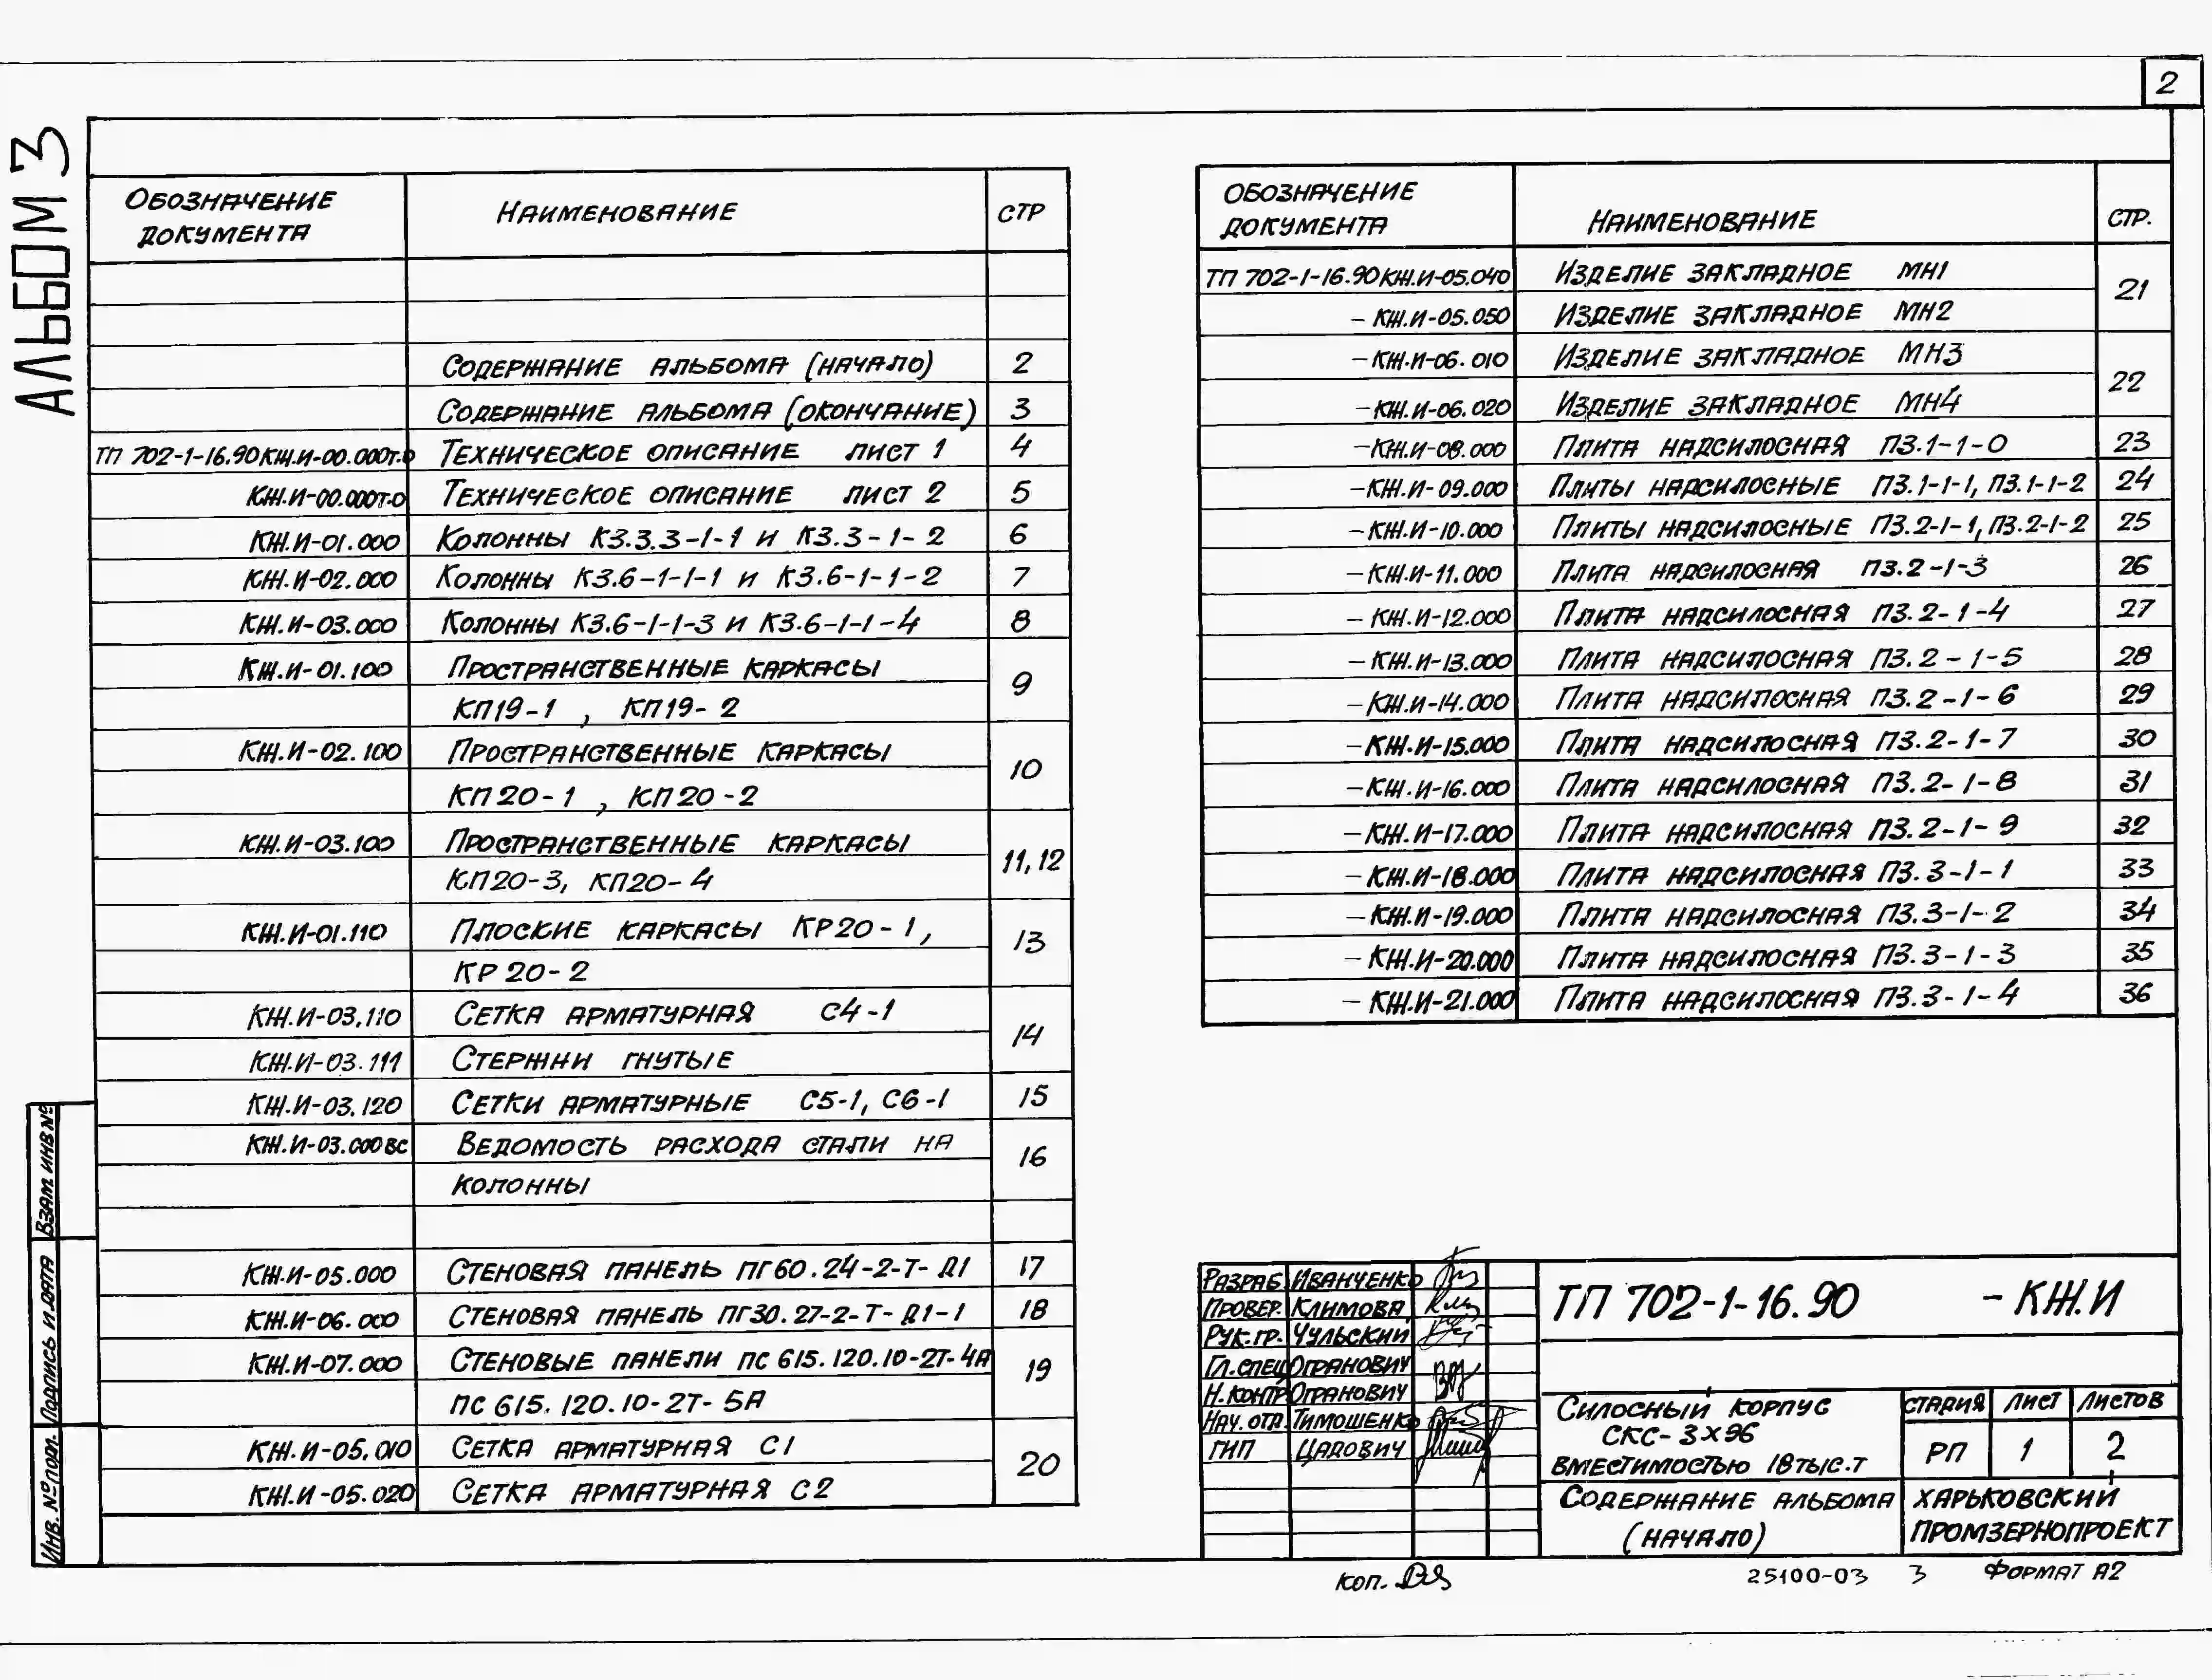 2
АЛЬБОМ 3
ОБОЗНАЧЕНИЕ ДОКУМЕНТА НАИМЕНОВАНИЕ СТР
СОДЕРЖАНИЕ АЛЬБОМА (НАЧАЛО) 2
СОДЕРЖАНИЕ АЛЬБОМА (ОКОНЧАНИЕ) 3
ТП 702-1-16.90КЖ.И-00.000Т.О ТЕХНИЧЕСКОЕ ОПИСАНИЕ ЛИСТ 1 4
КЖ.И-00.000Т.О ТЕХНИЧЕСКОЕ ОПИСАНИЕ ЛИСТ 2 5
КЖ.И-01.000 КОЛОННЫ К3.3.3-1-1 И К3.3-1-2 6
КЖ.И-02.000 КОЛОННЫ К3.6-1-1-1 И К3.6-1-1-2 7
КЖ.И-03.000 КОЛОННЫ К3.6-1-1-3 И К3.6-1-1-4 8
КЖ.И-01.100 ПРОСТРАНСТВЕННЫЕ КАРКАСЫ 9
КП19-1 , КП19-2
КЖ.И-02.100 ПРОСТРАНСТВЕННЫЕ КАРКАСЫ 10
КП20-1 , КП20-2
КЖ.И-03.100 ПРОСТРАНСТВЕННЫЕ КАРКАСЫ 11,12
КП20-3, КП20-4
КЖ.И-01.110 ПЛОСКИЕ КАРКАСЫ КР20-1, 13
КР20-2
КЖ.И-03.110 СЕТКА АРМАТУРНАЯ С4-1 14
КЖ.И-03.111 СТЕРЖНИ ГНУТЫЕ
КЖ.И-03.120 СЕТКИ АРМАТУРНЫЕ С5-1, С6-1 15
КЖ.И-03.000ВС ВЕДОМОСТЬ РАСХОДА СТАЛИ НА 16
КОЛОННЫ
КЖ.И-05.000 СТЕНОВАЯ ПАНЕЛЬ ПГ60.24-2-Т-Д1 17
КЖ.И-06.000 СТЕНОВАЯ ПАНЕЛЬ ПГ30.27-2-Т-Д1-1 18
КЖ.И-07.000 СТЕНОВЫЕ ПАНЕЛИ ПС 615.120.10-2Т-4А 19
ПС 615.120.10-2Т-5А
КЖ.И-05.010 СЕТКА АРМАТУРНАЯ С1 20
КЖ.И-05.020 СЕТКА АРМАТУРНАЯ С2
ОБОЗНАЧЕНИЕ ДОКУМЕНТА НАИМЕНОВАНИЕ СТР.
ТП 702-1-16.90КЖ.И-05.040 ИЗДЕЛИЕ ЗАКЛАДНОЕ МН1 21
-КЖ.И-05.050 ИЗДЕЛИЕ ЗАКЛАДНОЕ МН2
-КЖ.И-06.010 ИЗДЕЛИЕ ЗАКЛАДНОЕ МН3 22
-КЖ.И-06.020 ИЗДЕЛИЕ ЗАКЛАДНОЕ МН4
-КЖ.И-08.000 ПЛИТА НАДСИЛОСНАЯ П3.1-1-0 23
-КЖ.И-09.000 ПЛИТЫ НАДСИЛОСНЫЕ П3.1-1-1, П3.1-1-2 24
-КЖ.И-10.000 ПЛИТЫ НАДСИЛОСНЫЕ П3.2-1-1, П3.2-1-2 25
-КЖ.И-11.000 ПЛИТА НАДСИЛОСНАЯ П3.2-1-3 26
-КЖ.И-12.000 ПЛИТА НАДСИЛОСНАЯ П3.2-1-4 27
-КЖ.И-13.000 ПЛИТА НАДСИЛОСНАЯ П3.2-1-5 28
-КЖ.И-14.000 ПЛИТА НАДСИЛОСНАЯ П3.2-1-6 29
-КЖ.И-15.000 ПЛИТА НАДСИЛОСНАЯ П3.2-1-7 30
-КЖ.И-16.000 ПЛИТА НАДСИЛОСНАЯ П3.2-1-8 31
-КЖ.И-17.000 ПЛИТА НАДСИЛОСНАЯ П3.2-1-9 32
-КЖ.И-18.000 ПЛИТА НАДСИЛОСНАЯ П3.3-1-1 33
-КЖ.И-19.000 ПЛИТА НАДСИЛОСНАЯ П3.3-1-2 34
-КЖ.И-20.000 ПЛИТА НАДСИЛОСНАЯ П3.3-1-3 35
-КЖ.И-21.000 ПЛИТА НАДСИЛОСНАЯ П3.3-1-4 36
ВЗАМ. ИНВ №
ПОДПИСЬ И ДАТА
ИНВ. № ПОДЛ.
РАЗРАБ. ИВАНЧЕНКО
ПРОВЕР. КЛИМОВА
РУК.ГР. ЧУЛЬСКИЙ
ГЛ.СПЕЦ ОГРАНОВИЧ
Н.КОНТР ОГРАНОВИЧ
НАЧ. ОТД. ТИМОШЕНКО
ГИП ЦАДОВИЧ
ТП 702-1-16.90 -КЖ.И
СИЛОСНЫЙ КОРПУС
СКС-3х96
ВМЕСТИМОСТЬЮ 18 ТЫС.Т
СТАДИЯ ЛИСТ ЛИСТОВ
РП 1 2
СОДЕРЖАНИЕ АЛЬБОМА
(НАЧАЛО)
ХАРЬКОВСКИЙ
ПРОМЗЕРНОПРОЕКТ
КОП.
25100-03 3 ФОРМАТ А2